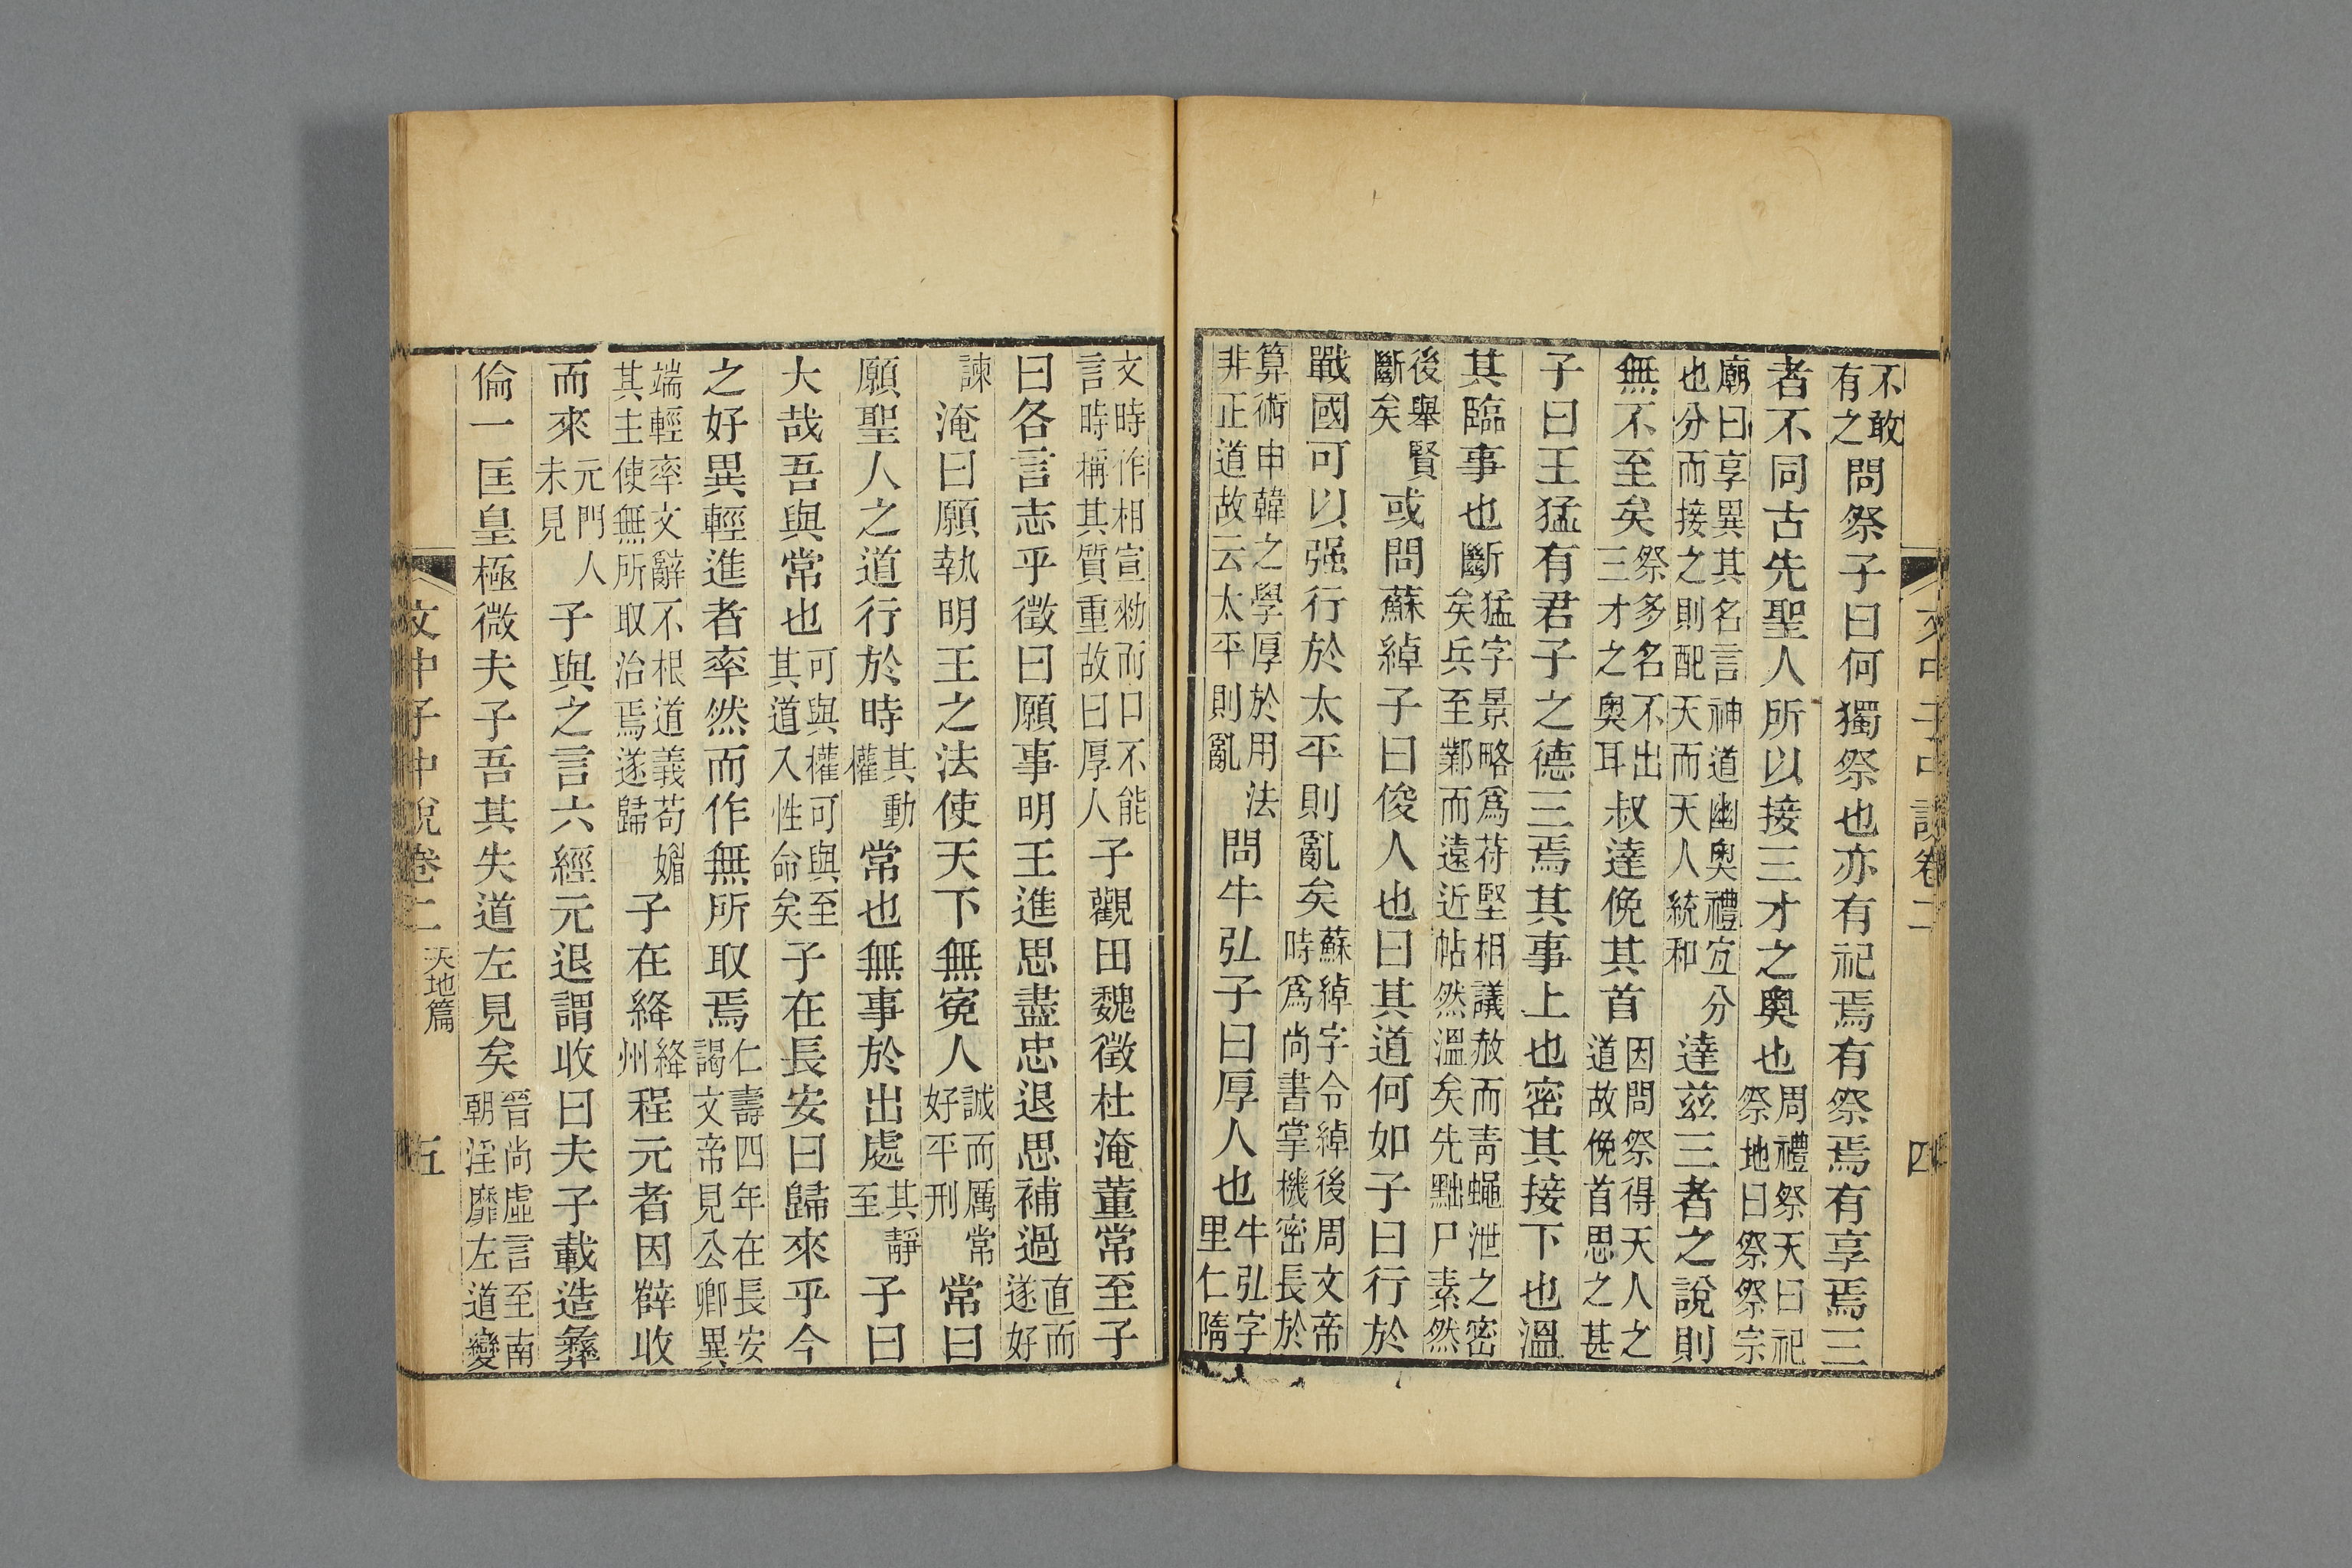 不敢有之問祭子曰何獨祭也亦有祀焉有祭焉有享焉三
者不同古先聖人所以接三才之奧也周禮祭天曰祀祭地曰祭祭宗
廟曰享異其名言神道幽奧禮宜分也分而接之則配天而天人統和達茲三者之說則
無不至矣祭多名不出三才之奧耳叔達俛其首因問祭得天人之道故俛首思之甚
子曰王猛有君子之德三焉其事上也密其接下也溫
其臨事也斷猛字景略爲苻堅相議赦而靑蠅泄之密矣兵至鄴而遠近帖然溫矣先黜尸素然
後舉賢斷矣或問蘇綽子曰俊人也曰其道何如子曰行於
戰國可以强行於太平則亂矣蘇綽字令綽後周文帝時爲尚書掌機密長於
算術申韓之學厚於用法非正道故云太平則亂問牛弘子曰厚人也牛弘字里仁隋
文時作相宣勑而口不能言時稱其質重故曰厚人子觀田魏徵杜淹董常至子
曰各言志乎徵曰願事明王進思盡忠退思補過直而遂好
諫淹曰願執明王之法使天下無冤人誠而厲常好平刑常曰
願聖人之道行於時其動權常也無事於出處其靜至子曰
大哉吾與常也可與權可與至其道入性命矣子在長安曰歸來乎今
之好異輕進者率然而作無所取焉仁壽四年在長安謁文帝見公卿異
端輕率文辭不根道義苟媚其主使無所取治焉遂歸子在絳絳州程元者因薛收
而來元門人未見子與之言六經元退謂收曰夫子載造彝
倫一匡皇極微夫子吾其失道左見矣晉尚虛言至南朝淫靡左道變
文中子中說卷二
天地篇
五
文中子中說卷二
四